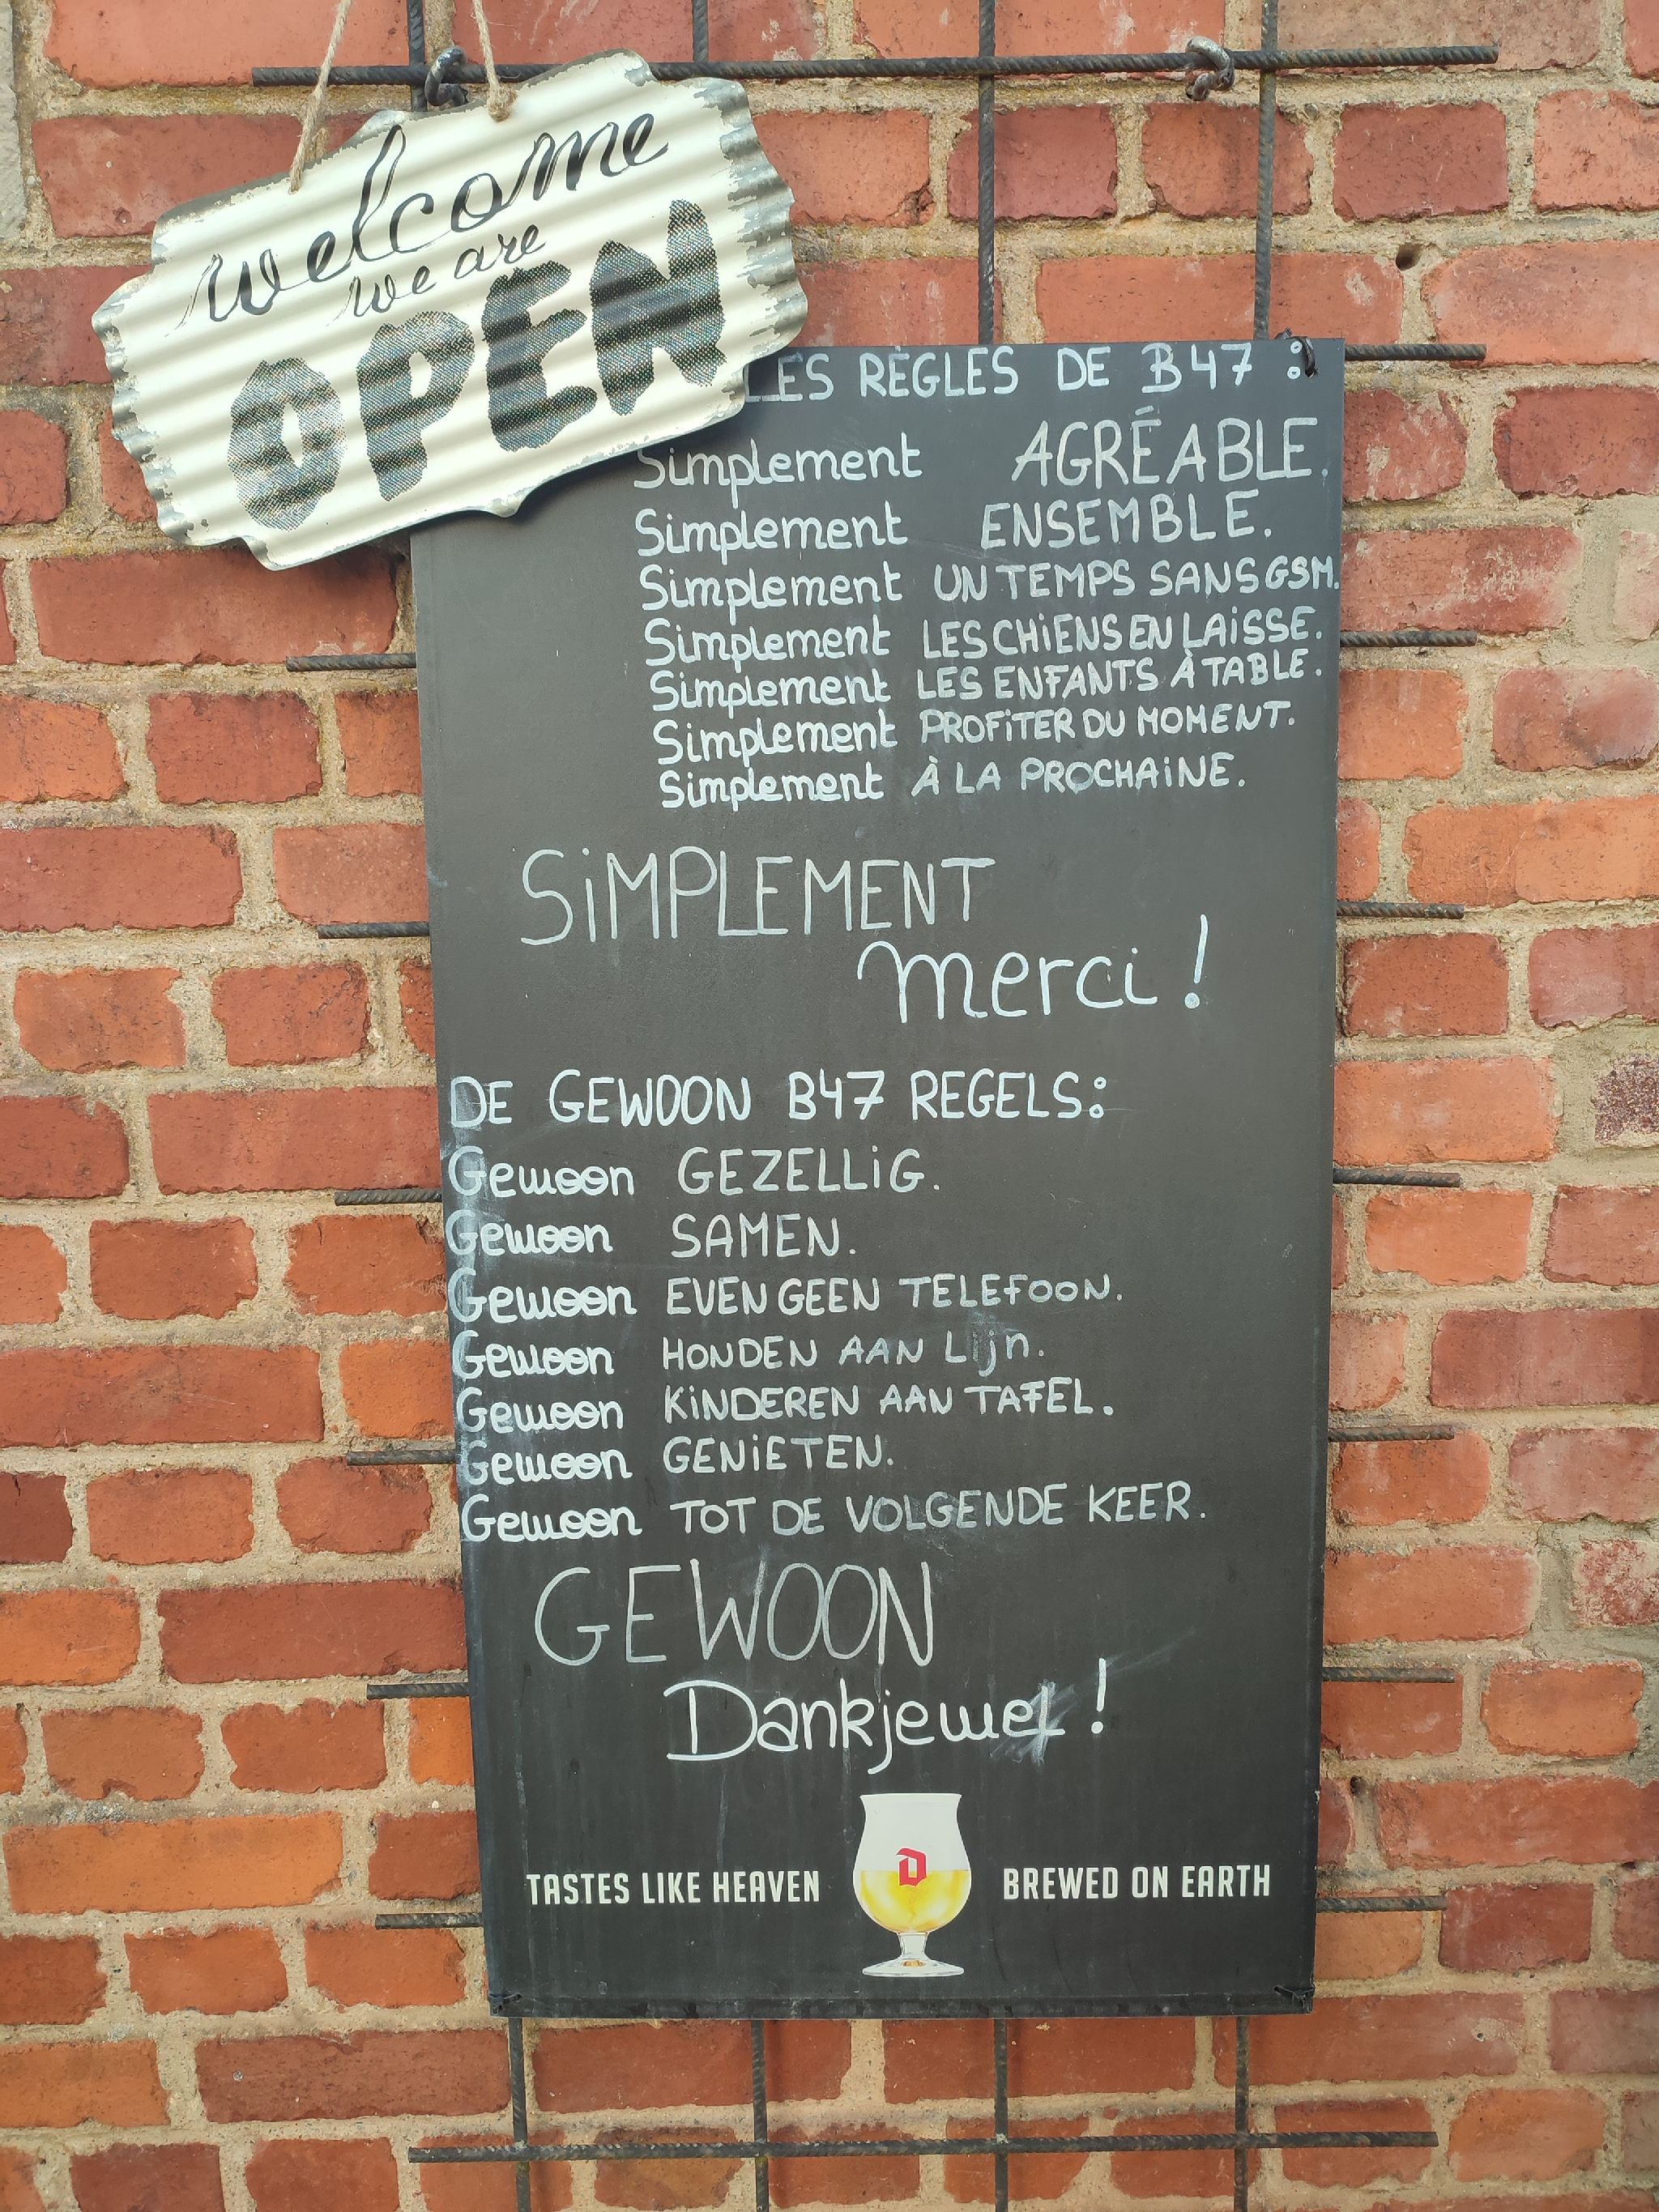 welcome
we are
OPEN
LES RÈGLES DE B47 :
Simplement AGRÉABLE.
Simplement ENSEMBLE.
Simplement UN TEMPS SANS GSM.
Simplement LES CHiENS EN LAiSSE.
Simplement LES ENFANTS À TABLE.
Simplement PROFiTER DU MOMENT.
Simplement À LA PROCHAiNE.
SiMPLEMENT
merci !
DE GEWOON B47 REGELS:
Gewoon GEZELLiG.
Gewoon SAMEN.
Gewoon EVEN GEEN TELEFOON.
Gewoon HONDEN AAN Lijn.
Gewoon KiNDEREN AAN TAFEL.
Gewoon GENiETEN.
Gewoon TOT DE VOLGENDE KEER.
GEWOON
Dankjewel !
D
TASTES LIKE HEAVEN BREWED ON EARTH